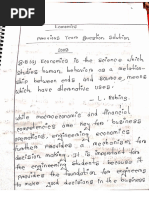 Economics
Previous Years Question Solution
2003
Economics is the science which
studies human behavior as a relation-
ship between ends and scarce means
which have alternative uses.
- L. Robbins.
While macroeconomic and financial
competencies are new for business
objectives, engineering economics
further provides a mechanism for
decision making. It is important for
engineering students because it
provides the foundation for engineering
to make good decisions in the business